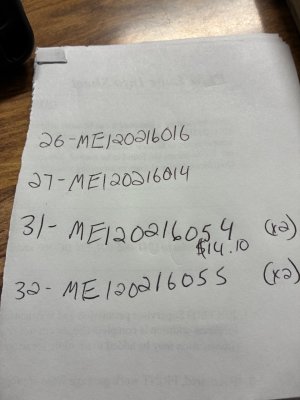 26-ME120216016
27-ME120216014
31- ME120216054 (x2)
$14.10
32- ME120216055 (x2)